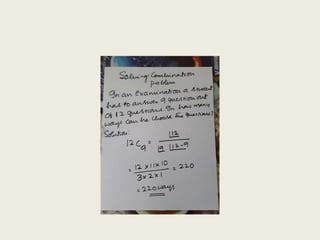 Solving Combination
Problem
In an Examination a student
has to answer 9 question out
of 12 questions. In how many
ways can he choose the questions?
Solution:
12C9 = |12
|9 |12-9
= 12 x 11 x 10 = 220
3 x 2 x 1
= 220 ways